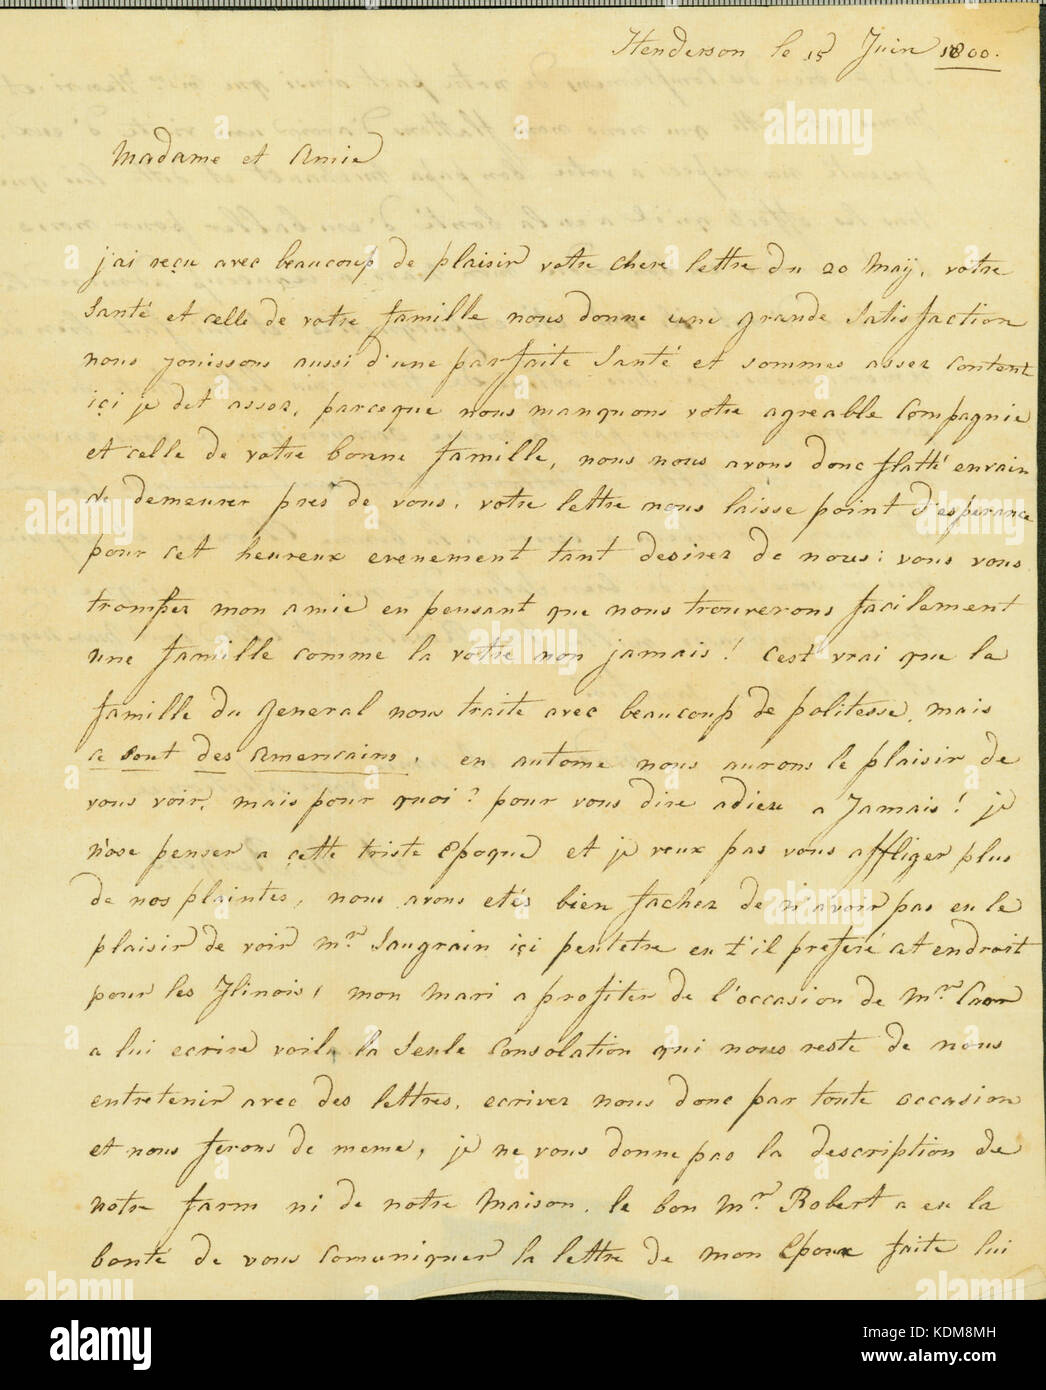 Henderson le 15 Juin 1800.
Madame et Amie
j'ai reçu avec beaucoup de plaisir votre chere lettre du 20 Maÿ, votre
Santé et celle de votre famille nous donne une grande Satisfaction
nous jouissons aussi d'une parfaite Santé et sommes assez content
içi je dit assez, parceque nous manquons votre agreable Compagnie
et celle de votre bonne famille, nous nous avons donc flatté envain
de demeurer pres de vous, votre lettre nous laisse point d'esperance
pour cet heureux evenement tant desirez de nous: vous vous
trompez mon amie en pensant que nous trouverons facilement
une famille comme la votre non jamais! C'est vrai que la
famille du General nous traite avec beaucoup de politesse, mais
ce sont des Americains, en automne nous aurons le plaisir de
vous voir, mais pour quoi? pour vous dire adieu a Jamais! je
n'ose penser a cette triste Epoque et je veux pas vous affliger plus
de nos plaintes, nous avons etés bien fachez de n'avoir pas eu le
plaisir de voir Mr. Saugrain içi peutetre eu t'il preferé cet endroit
pour les Ilinois, mon Mari a profiter de l'occasion de Mr.
a lui ecrire voila la Seule Consolation qui nous reste de nous
entretenir avec des lettres, ecrivez nous donc par toute occasion
et nous ferons de meme, je ne vous donne pas la description de
notre farm ni de notre Maison, le bon Mr. Robert a eu la
bonté de vous Comuniquer la lettre de mon Epoux faite lui
alamy
Image ID: KDM8MH
www.alamy.com